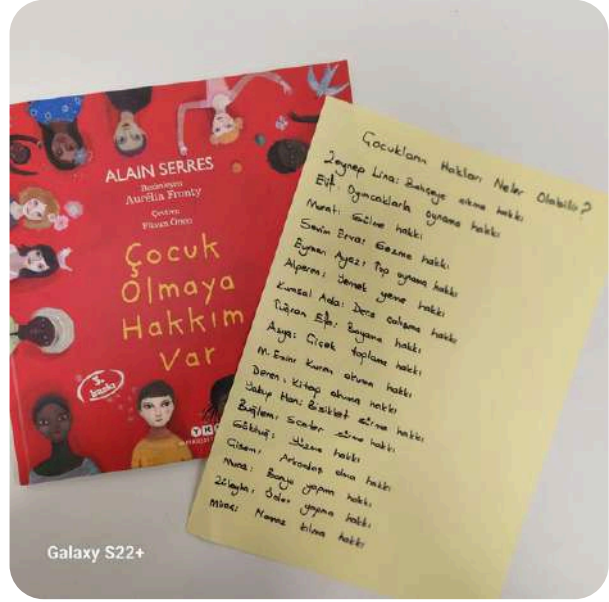 ALAIN SERRES
Resimleyen
Aurélia Fronty
Çeviren
Füsun Önen
Çocuk
Olmaya
Hakkım
Var
3.
baskı
Çocukların Hakları Neler Olabilir?
Zeynep Lina: Bahçeye çıkma hakkı
Elif: Oyuncaklarla oynama hakkı
Murat: Gülme hakkı
Erva: Gezme hakkı
Eymen Ayaz: Top oynama hakkı
Alperen: Yemek yeme hakkı
Kumsal Ada: Ders çalışma hakkı
Efe: Boyama hakkı
Asya: Çiçek toplama hakkı
M. Emin: Kuran okuma hakkı
Deren: Kitap okuma hakkı
Yakup Han: Bisiklet sürme hakkı
Buğlem: Scooter sürme hakkı
Göktuğ: Yüzme hakkı
Gizem: Arkadaş olma hakkı
Banyo yapma hakkı
Züleyha: Ödev yapma hakkı
Miraç: Namaz kılma hakkı
Galaxy S22+